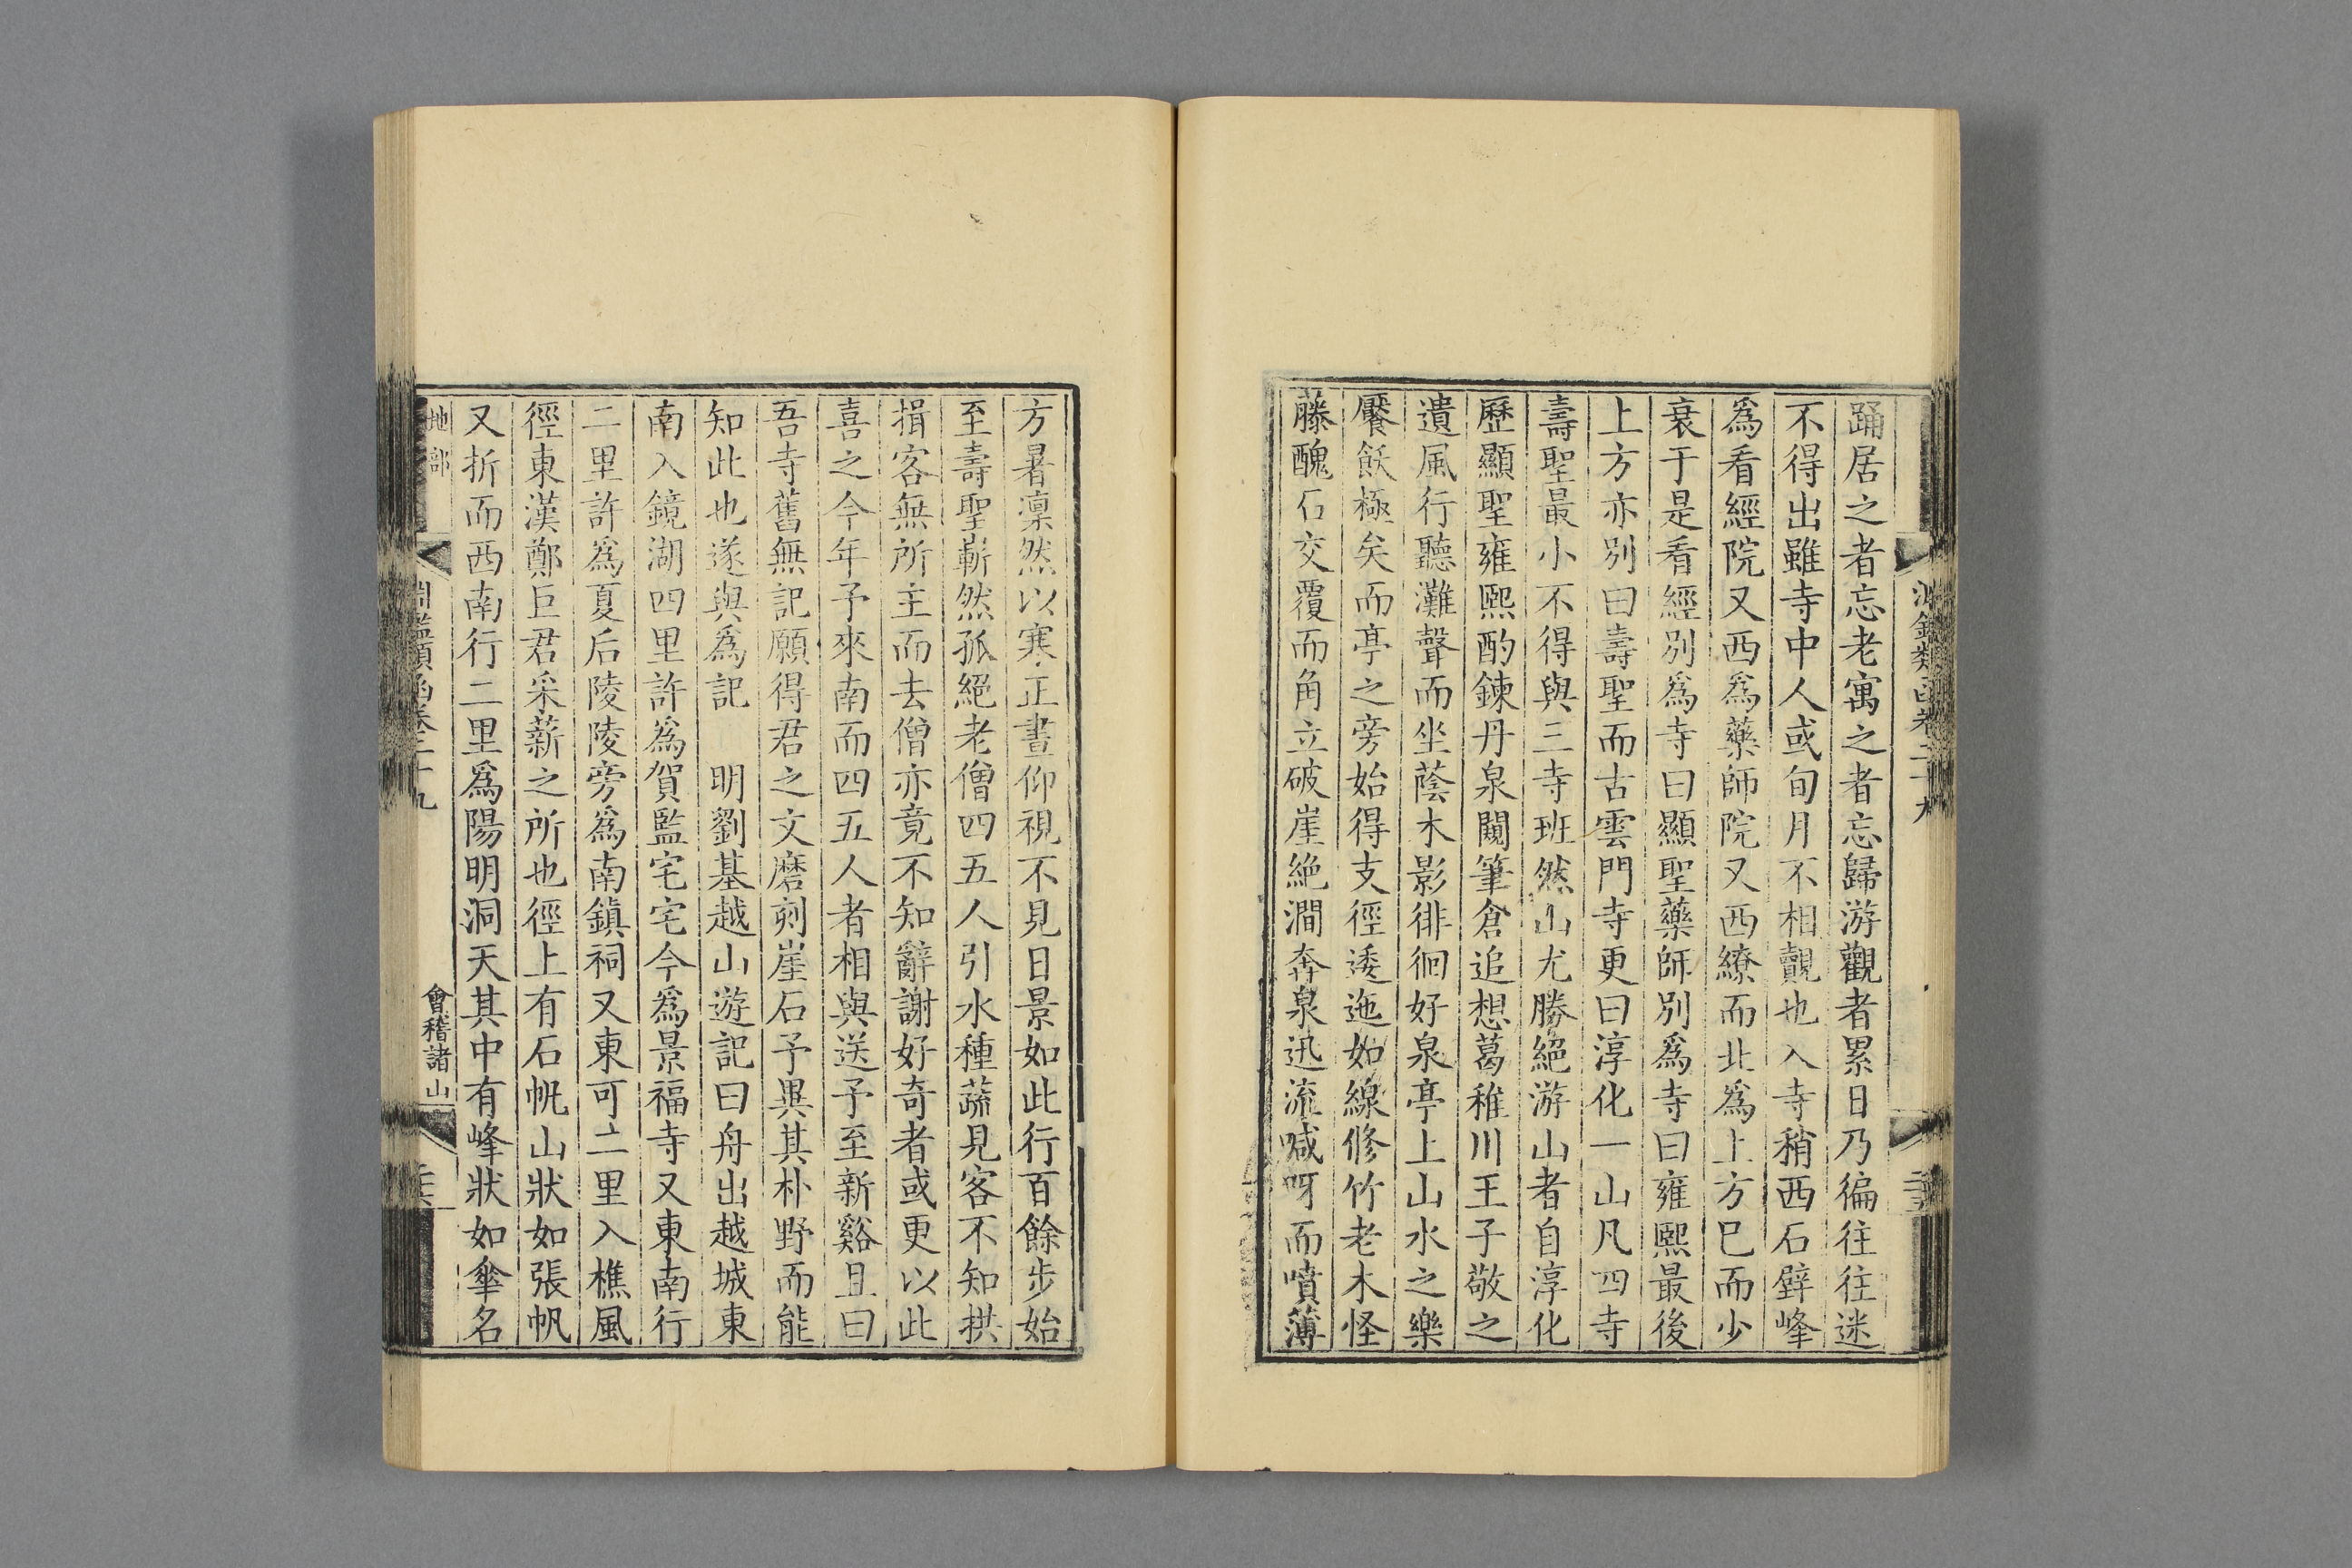 踊居之者忘老寓之者忘歸游觀者累日乃徧往往迷
不得出雖寺中人或旬月不相覿也入寺稍西石壁峰
爲看經院又西爲藥師院又西繚而北爲上方已而少
衰于是看經別爲寺曰顯聖藥師別爲寺曰雍熙最後
上方亦別曰壽聖而古雲門寺更曰淳化一山凡四寺
壽聖最小不得與三寺班然山尤勝絕游山者自淳化
歷顯聖雍熙酌鍊丹泉闚筆倉追想葛稚川王子敬之
遺風行聽灘聲而坐蔭木影徘徊好泉亭上山水之樂
饜飫極矣而亭之旁始得支徑逶迤如線修竹老木怪
藤醜石交覆而角立破崖絕澗奔泉迅流喊呀而噴薄
方暑凜然以寒正晝仰視不見日景如此行百餘步始
至壽聖嶄然孤絕老僧四五人引水種蔬見客不知拱
揖客無所主而去僧亦竟不知辭謝好奇者或更以此
喜之今年予來南而四五人者相與送予至新谿且曰
吾寺舊無記願得君之文磨刻崖石予異其朴野而能
知此也遂與爲記　明劉基越山遊記曰舟出越城東
南入鏡湖四里許爲賀監宅宅今爲景福寺又東南行
二里許爲夏后陵陵旁爲南鎮祠又東可二里入樵風
徑東漢鄭巨君采薪之所也徑上有石帆山狀如張帆
又折而西南行二里爲陽明洞天其中有峰狀如傘名
地部
淵鑑類函卷二十九
會稽諸山